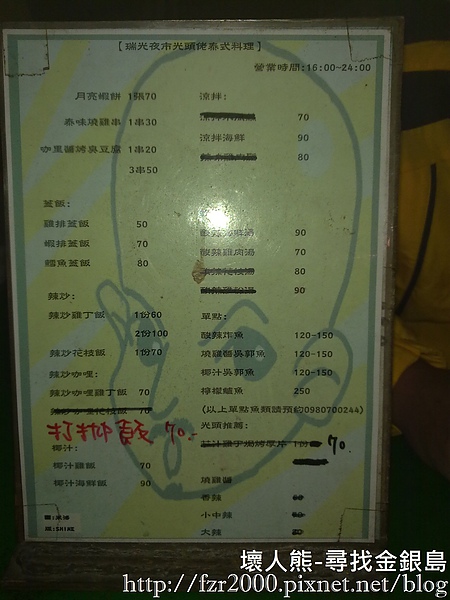 【瑞光夜市光頭佬泰式料理】
營業時間:16:00~24:00
月亮蝦餅 1張70
泰味燒雞串 1串30
咖里醬烤臭豆腐 1串20
3串50
蓋飯:
雞排蓋飯 50
蝦排蓋飯 70
鱈魚蓋飯 80
辣炒:
辣炒雞丁飯 1份60
2份100
辣炒花枝飯 1份70
辣炒咖哩:
辣炒咖哩雞丁飯 70
辣炒咖哩花枝飯 70
打抛飯 70.-
椰汁:
椰汁雞飯 70
椰汁海鮮飯 90
涼拌:
70
涼拌海鮮 90
80
酸辣海鮮湯 90
酸辣雞肉湯 70
酸辣花枝湯 80
90
單點:
酸辣炸魚 120-150
燒雞醬吳郭魚 120-150
椰汁吳郭魚 120-150
檸檬鱸魚 250
(以上單點魚類請預約0980700244)
光頭推薦:
椰汁雞丁焗烤厚片 1份 70.
燒雞醬
香辣
小中辣
大辣
壞人熊-尋找金銀島
http://fzr2000.pixnet.net/blog